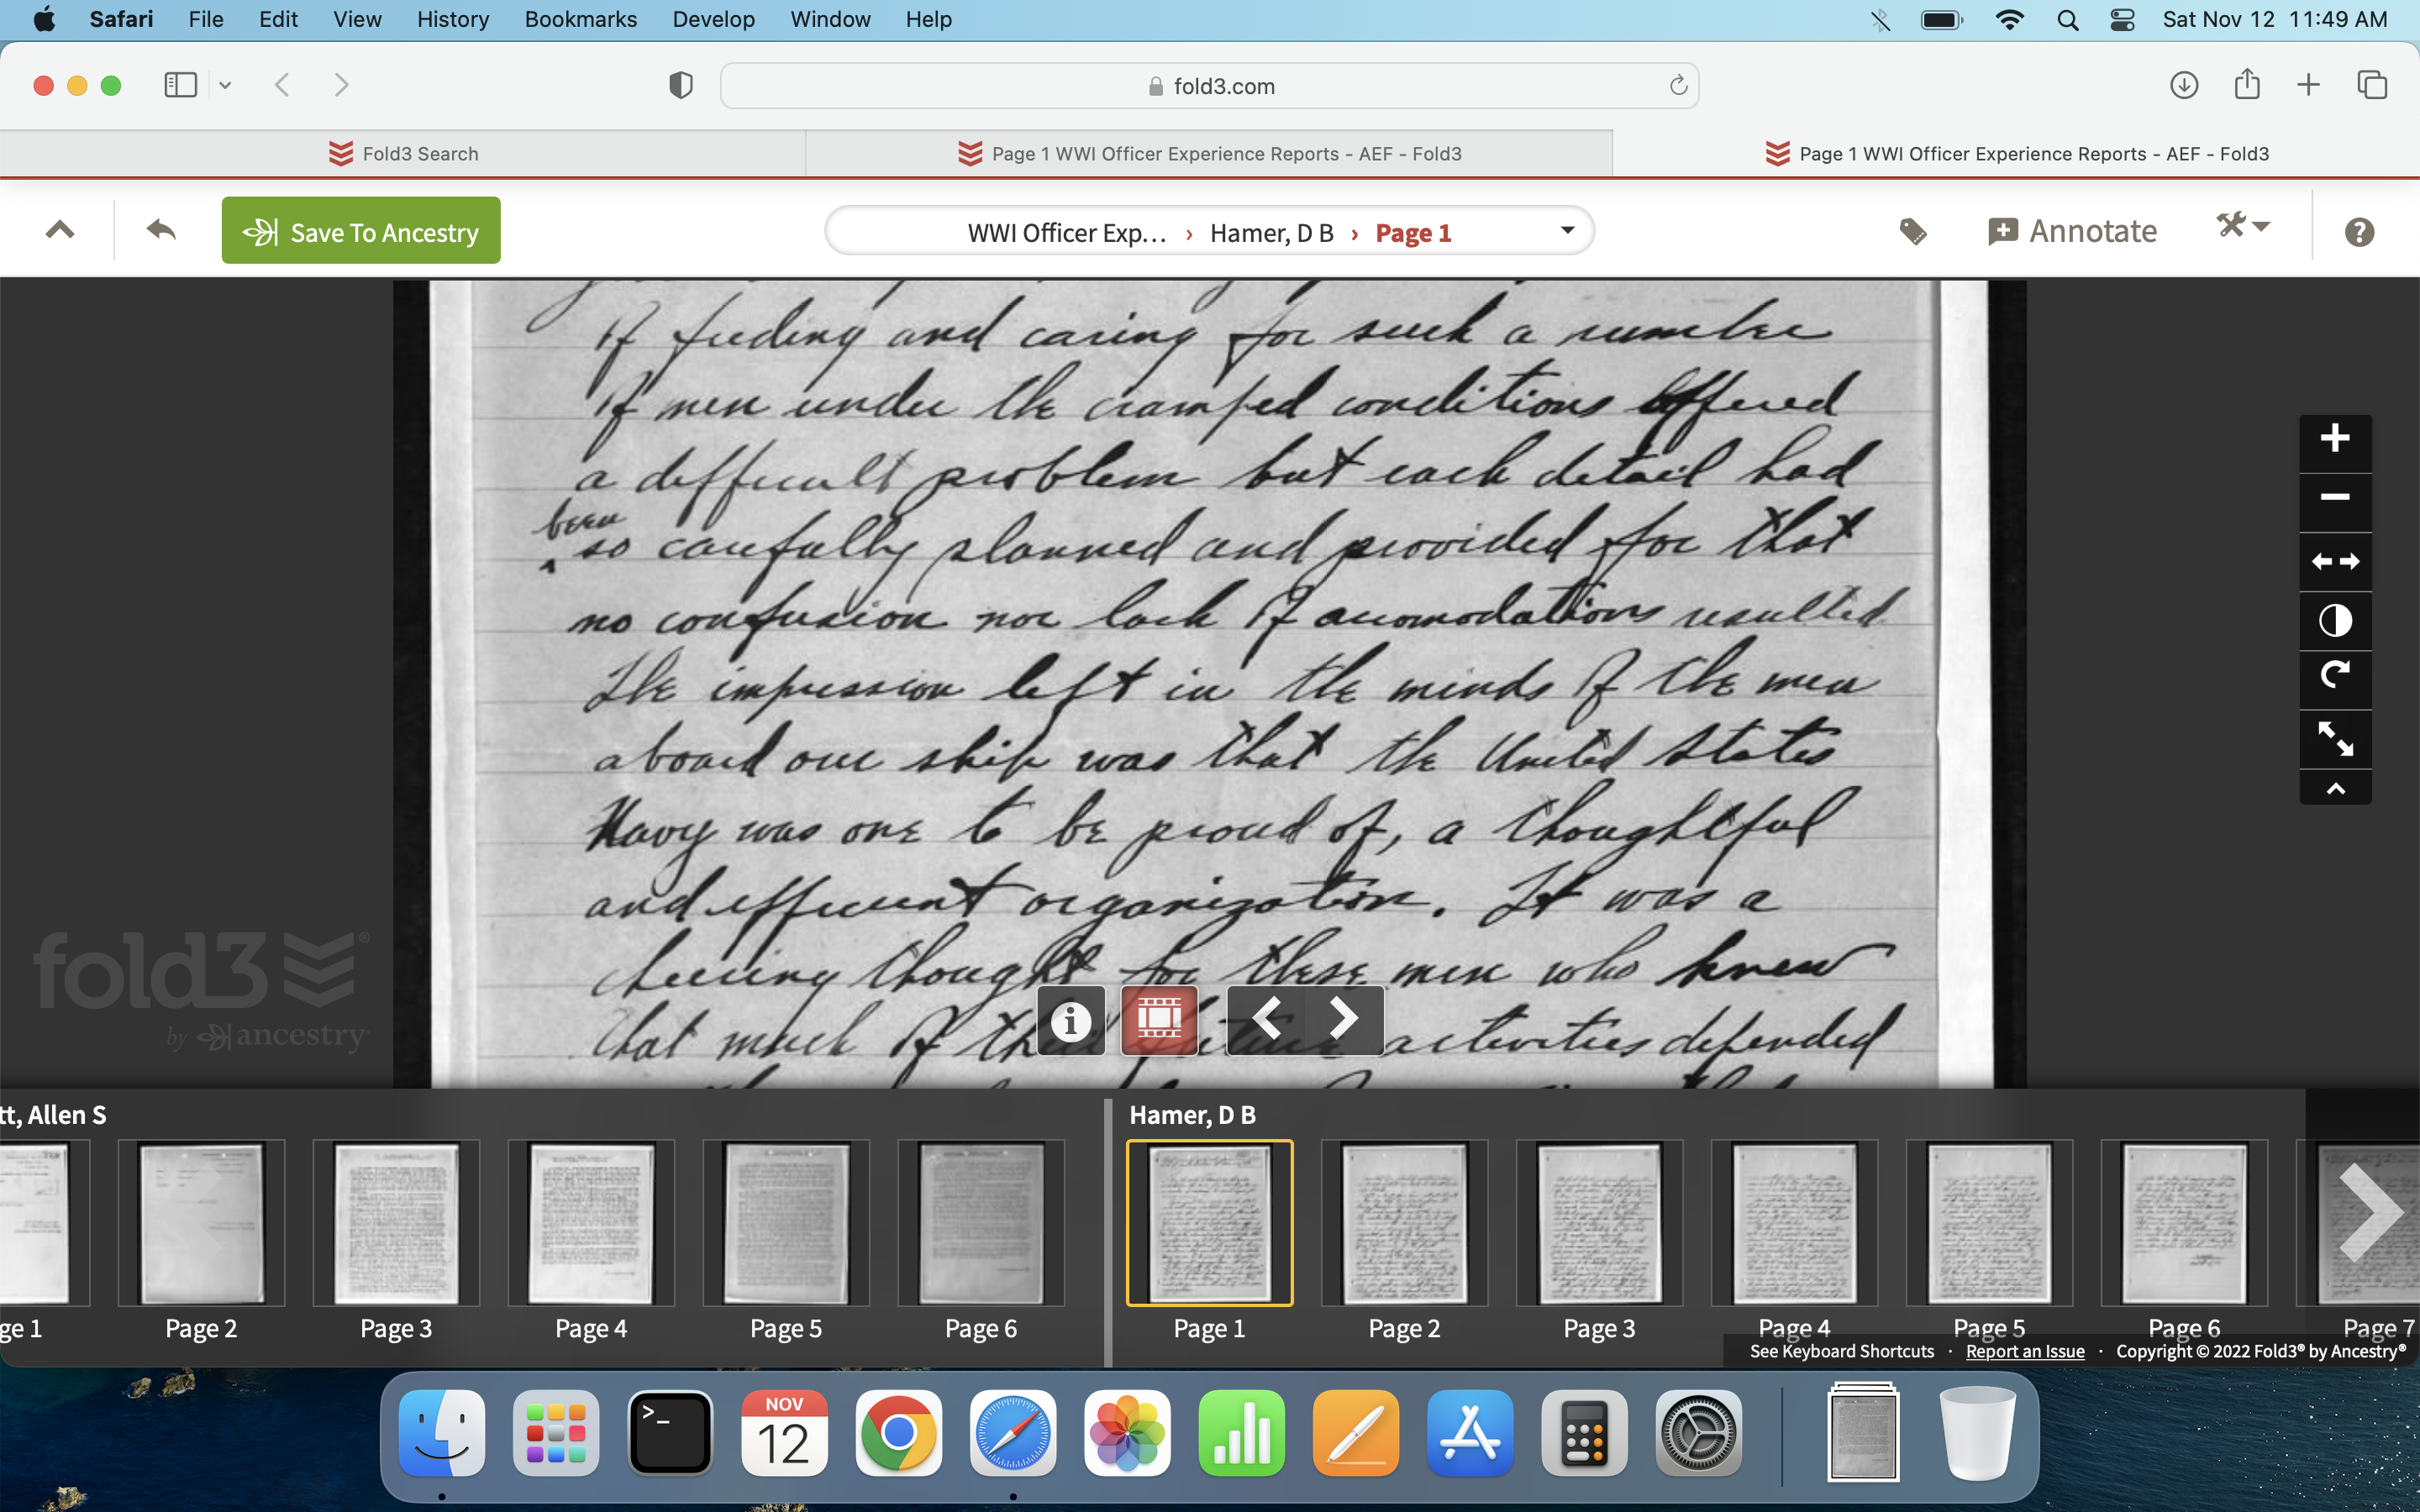 Safari File Edit View History Bookmarks Develop Window Help Sat Nov 12 11:49 AM
fold3.com
Fold3 Search
Page 1 WWI Officer Experience Reports - AEF - Fold3
Page 1 WWI Officer Experience Reports - AEF - Fold3
Save To Ancestry
WWI Officer Exp... › Hamer, D B › Page 1
Annotate
of feeding and caring for such a number
of men under the cramped conditions offered
a difficult problem but each detail had
been
so carefully planned and provided for that
no confusion nor lack of acomodations resulted
The impression left in the minds of the men
aboard our ship was that the United States
Navy was one to be proud of, a thoughtful
and efficient organization. It was a
cheering thought for these men who knew
that much of their future activities depended
fold3®
by ancestry
tt, Allen S
Hamer, D B
ge 1
Page 2
Page 3
Page 4
Page 5
Page 6
Page 1
Page 2
Page 3
Page 4
Page 5
Page 6
Page 7
See Keyboard Shortcuts · Report an Issue · Copyright © 2022 Fold3® by Ancestry®
NOV
12